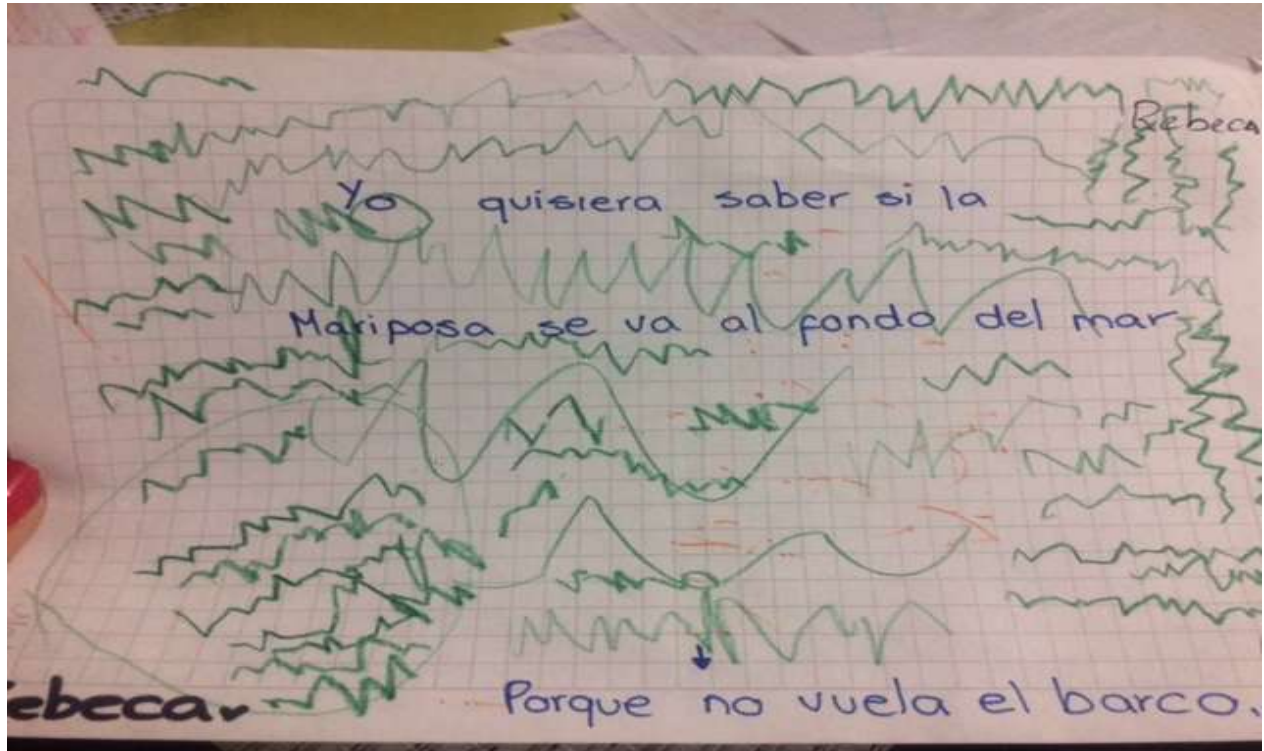 Rebeca
Yo quisiera saber si la
Mariposa se va al fondo del mar
Porque no vuela el barco.
ebeca